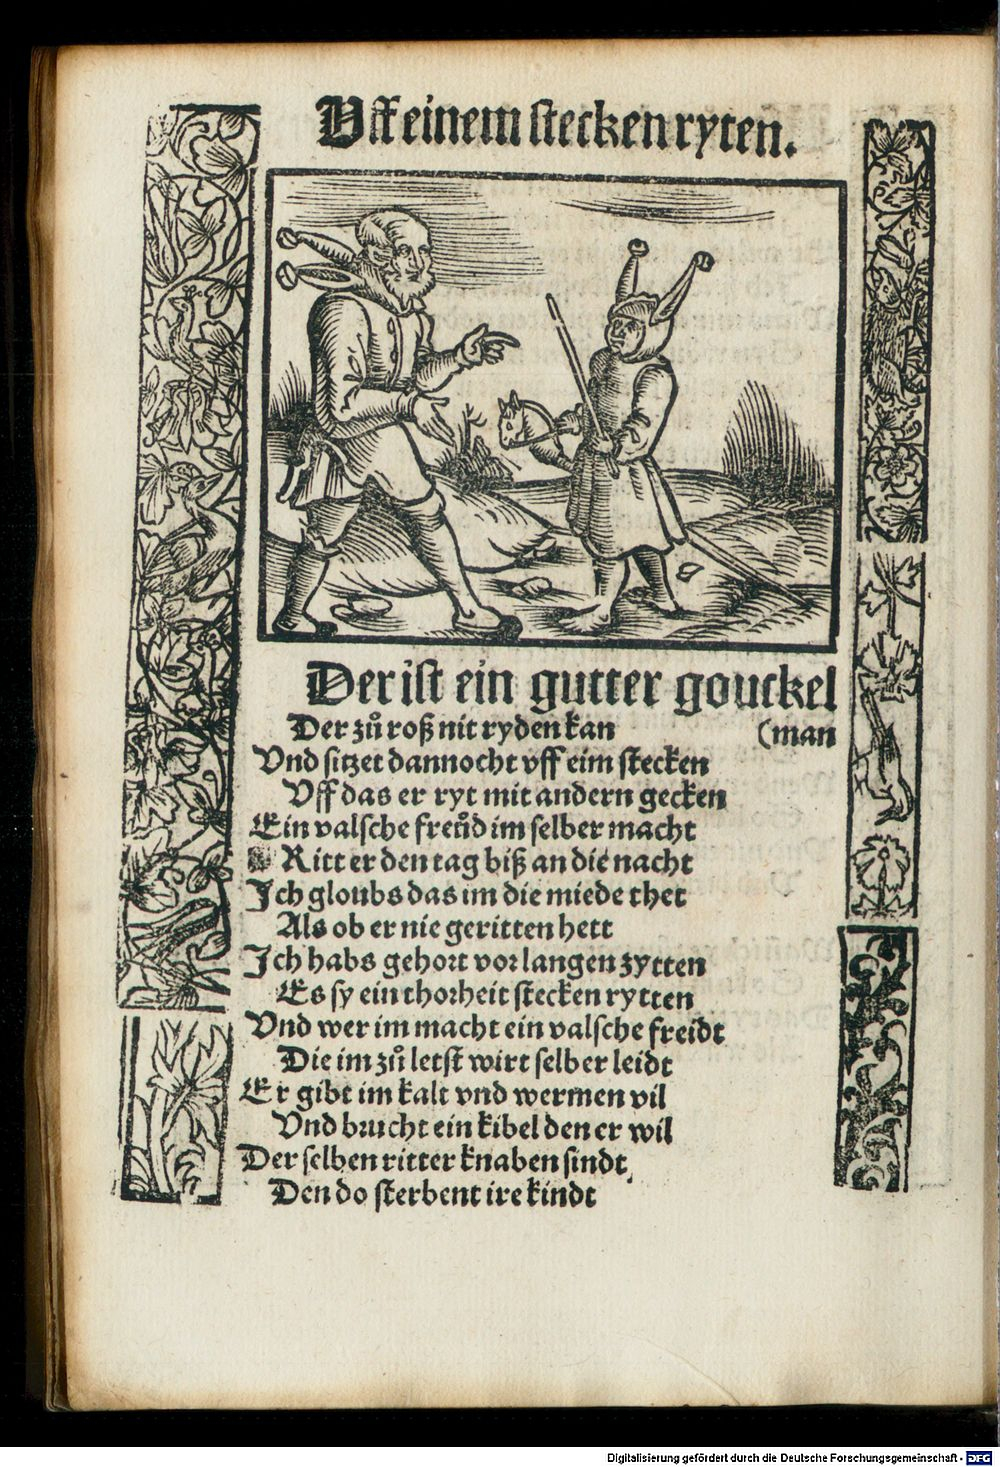 Vff einem stecken ryten.
Der ist ein gutter gouckel
Der zů roß nit ryden kan (man
Vnd sitzet dannocht vff eim stecken
Vff das er ryt mit andern gecken
Ein valsche freůd im selber macht
Ritt er den tag biß an die nacht
Ich gloubs das im die miede thet
Als ob er nie geritten hett
Ich habs gehort vor langen zytten
Es sy ein thorheit stecken rytten
Vnd wer im macht ein valsche freidt
Die im zů letst wirt selber leidt
Er gibt im kalt vnd wermen vil
Vnd brucht ein kibel den er wil
Der selben ritter knaben sindt
Den do sterbent ire kindt
Digitalisierung gefördert durch die Deutsche Forschungsgemeinschaft - DFG